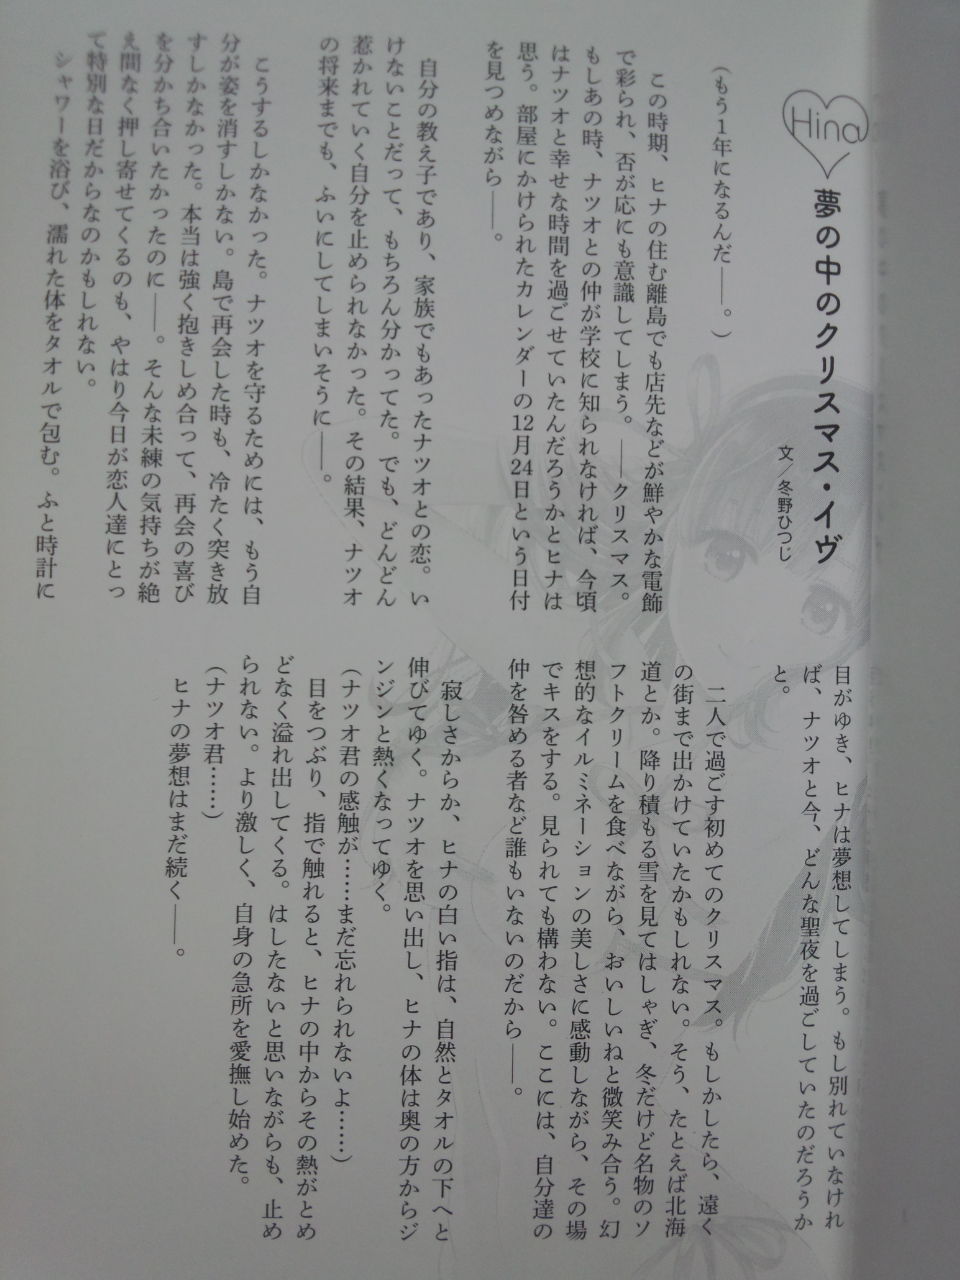 Hina
夢の中のクリスマス・イヴ
文／冬野ひつじ
（もう１年になるんだ――。）
この時期、ヒナの住む離島でも店先などが鮮やかな電飾
で彩られ、否が応にも意識してしまう。――クリスマス。
もしあの時、ナツオとの仲が学校に知られなければ、今頃
はナツオと幸せな時間を過ごせていたんだろうかとヒナは
思う。部屋にかけられたカレンダーの12月24日という日付
を見つめながら――。
自分の教え子であり、家族でもあったナツオとの恋。い
けないことだって、もちろん分かってた。でも、どんどん
惹かれていく自分を止められなかった。その結果、ナツオ
の将来までも、ふいにしてしまいそうに――。
こうするしかなかった。ナツオを守るためには、もう自
分が姿を消すしかない。島で再会した時も、冷たく突き放
すしかなかった。本当は強く抱きしめ合って、再会の喜び
を分かち合いたかったのに――。そんな未練の気持ちが絶
え間なく押し寄せてくるのも、やはり今日が恋人達にとっ
て特別な日だからなのかもしれない。
シャワーを浴び、濡れた体をタオルで包む。ふと時計に
目がゆき、ヒナは夢想してしまう。もし別れていなけれ
ば、ナツオと今、どんな聖夜を過ごしていたのだろうか
と。
二人で過ごす初めてのクリスマス。もしかしたら、遠く
の街まで出かけていたかもしれない。そう、たとえば北海
道とか。降り積もる雪を見てはしゃぎ、冬だけど名物のソ
フトクリームを食べながら、おいしいねと微笑み合う。幻
想的なイルミネーションの美しさに感動しながら、その場
でキスをする。見られても構わない。ここには、自分達の
仲を咎める者など誰もいないのだから――。
寂しさからか、ヒナの白い指は、自然とタオルの下へと
伸びてゆく。ナツオを思い出し、ヒナの体は奥の方からジ
ンジンと熱くなってゆく。
（ナツオ君の感触が……まだ忘れられないよ……）
目をつぶり、指で触れると、ヒナの中からその熱がとめ
どなく溢れ出してくる。はしたないと思いながらも、止め
られない。より激しく、自身の急所を愛撫し始めた。
（ナツオ君……）
ヒナの夢想はまだ続く――。